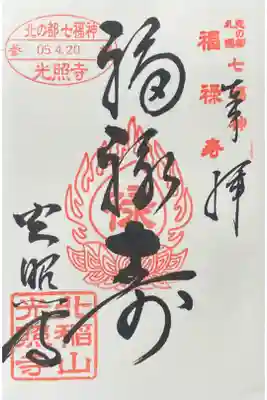 奉拝
北の都
札幌
七福神
福禄寿
福禄寿
禄
光照寺
北の都七福神
05.4.20
光照寺
北稲山
光照寺